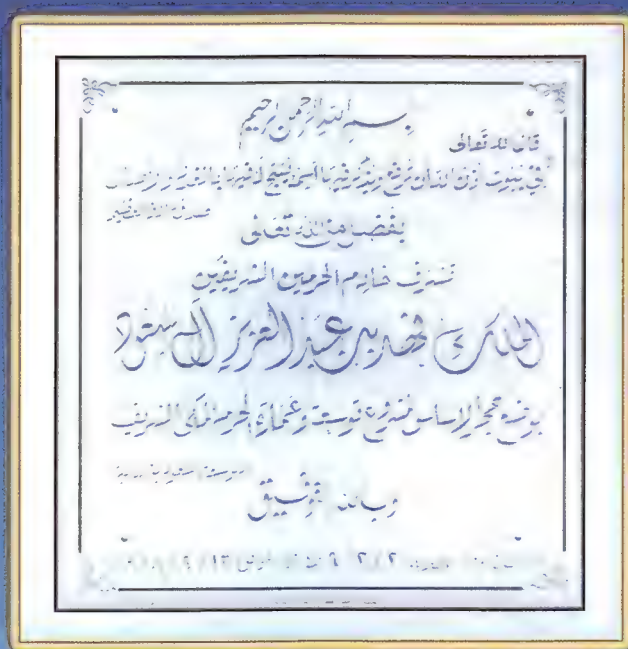 بسم الله الرحمن الرحيم
قال الله تعالى
في بيوت أذن الله أن ترفع ويذكر فيها اسمه يسبح له فيها بالغدو والآصال
صدق الله العظيم
بفضل من الله تعالى
تشرف خادم الحرمين الشريفين
الملك فهد بن عبد العزيز آل سعود
بوضع حجر الأساس لمشروع توسعة وعمارة الحرم المكي الشريف
وبالله التوفيق